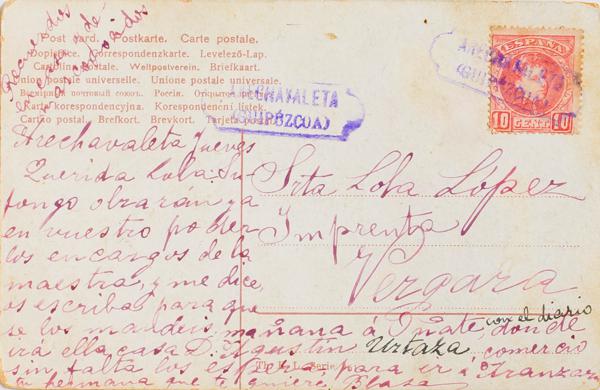 Recuerdos
en casa de
conocidos
Post card. Postkarte. Carte postale.
Dopisnice. Correspondenzkarte. Levelező-Lap.
Cartolina Postale. Weltpostverein. Briefkaart.
Union postale universelle. Unione postale universale.
Karta korespondencyjna. Korespondenční lístek.
Cartão postal. Brefkort. Brevkort. Tarjeta postal.
ARECHAVALETA
(GUIPÚZCOA)
ARECHAVALETA
(GUIPÚZCOA)
ESPAÑA
10 CENT. 10
Arechavaleta Jueves
Querida Lola: Su-
pongo obrarán ya
en vuestro poder
los encargos de la
maestra, y me dice,
os escriba para que
se los mandeis mañana á Oñate, donde
con el diario
irá ella casa D. Agustín Urtaza comercio
sin falta los espera para ir á Aranzazu
tu hermana que te quiere Blasa
Srta Lola López
Imprenta
Vergara
Serie